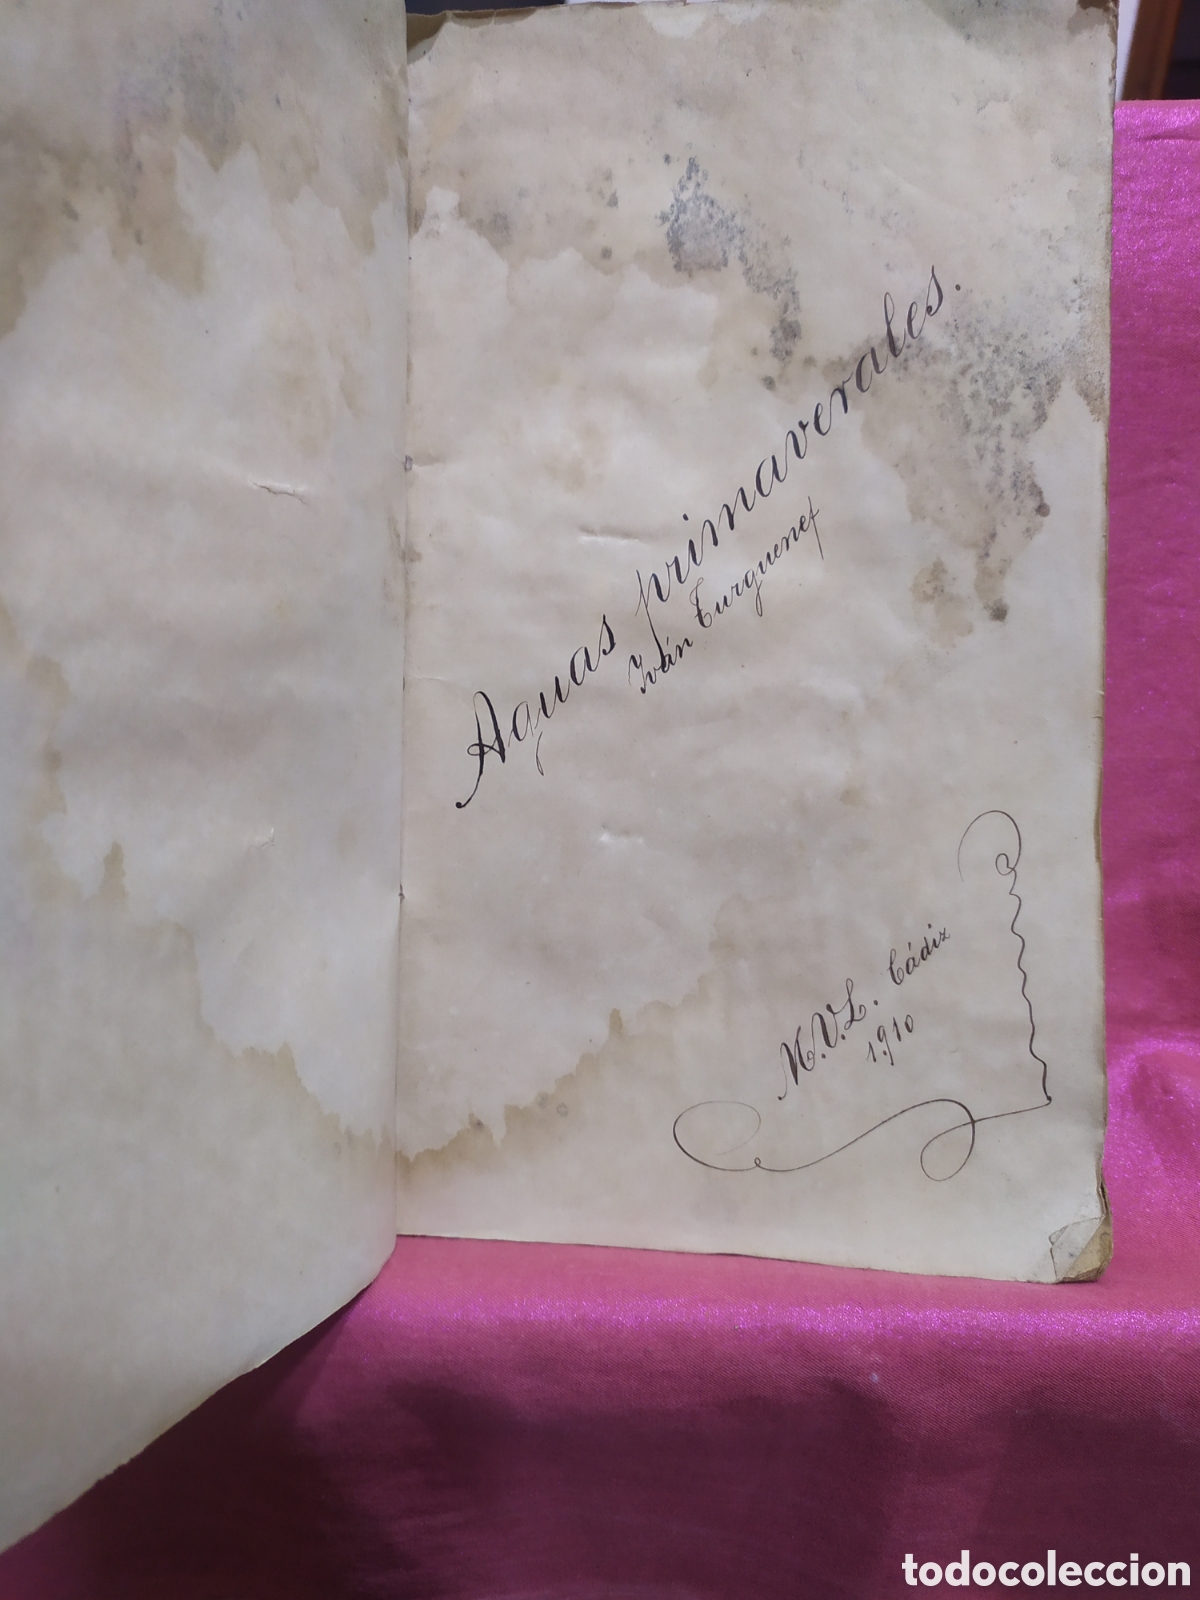 Aguas primaverales.
Iván Turguenef
M.V.L. Cádiz
1910
todocoleccion